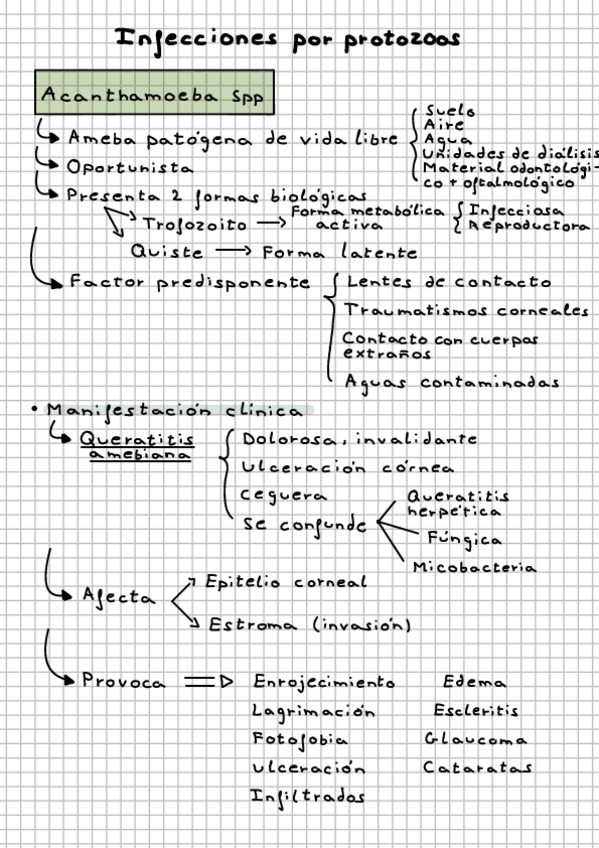 Infecciones por protozoos
Acanthamoeba Spp
Ameba patógena de vida libre
Suelo
Aire
Agua
Unidades de diálisis
Material odontológi-
co + oftalmológico
Oportunista
Presenta 2 formas biológicas
Trofozoito → Forma metabólica
activa
Infecciosa
Reproductora
Quiste → Forma latente
Factor predisponente
Lentes de contacto
Traumatismos corneales
Contacto con cuerpos
extraños
Aguas contaminadas
• Manifestación clínica
Queratitis
amebiana
Dolorosa, invalidante
Ulceración córnea
Ceguera
Se confunde
Queratitis
herpética
Fúngica
Micobacteria
Afecta
Epitelio corneal
Estroma (invasión)
Provoca
Enrojecimiento Edema
Lagrimación Escleritis
Fotofobia Glaucoma
Ulceración Cataratas
Infiltrados